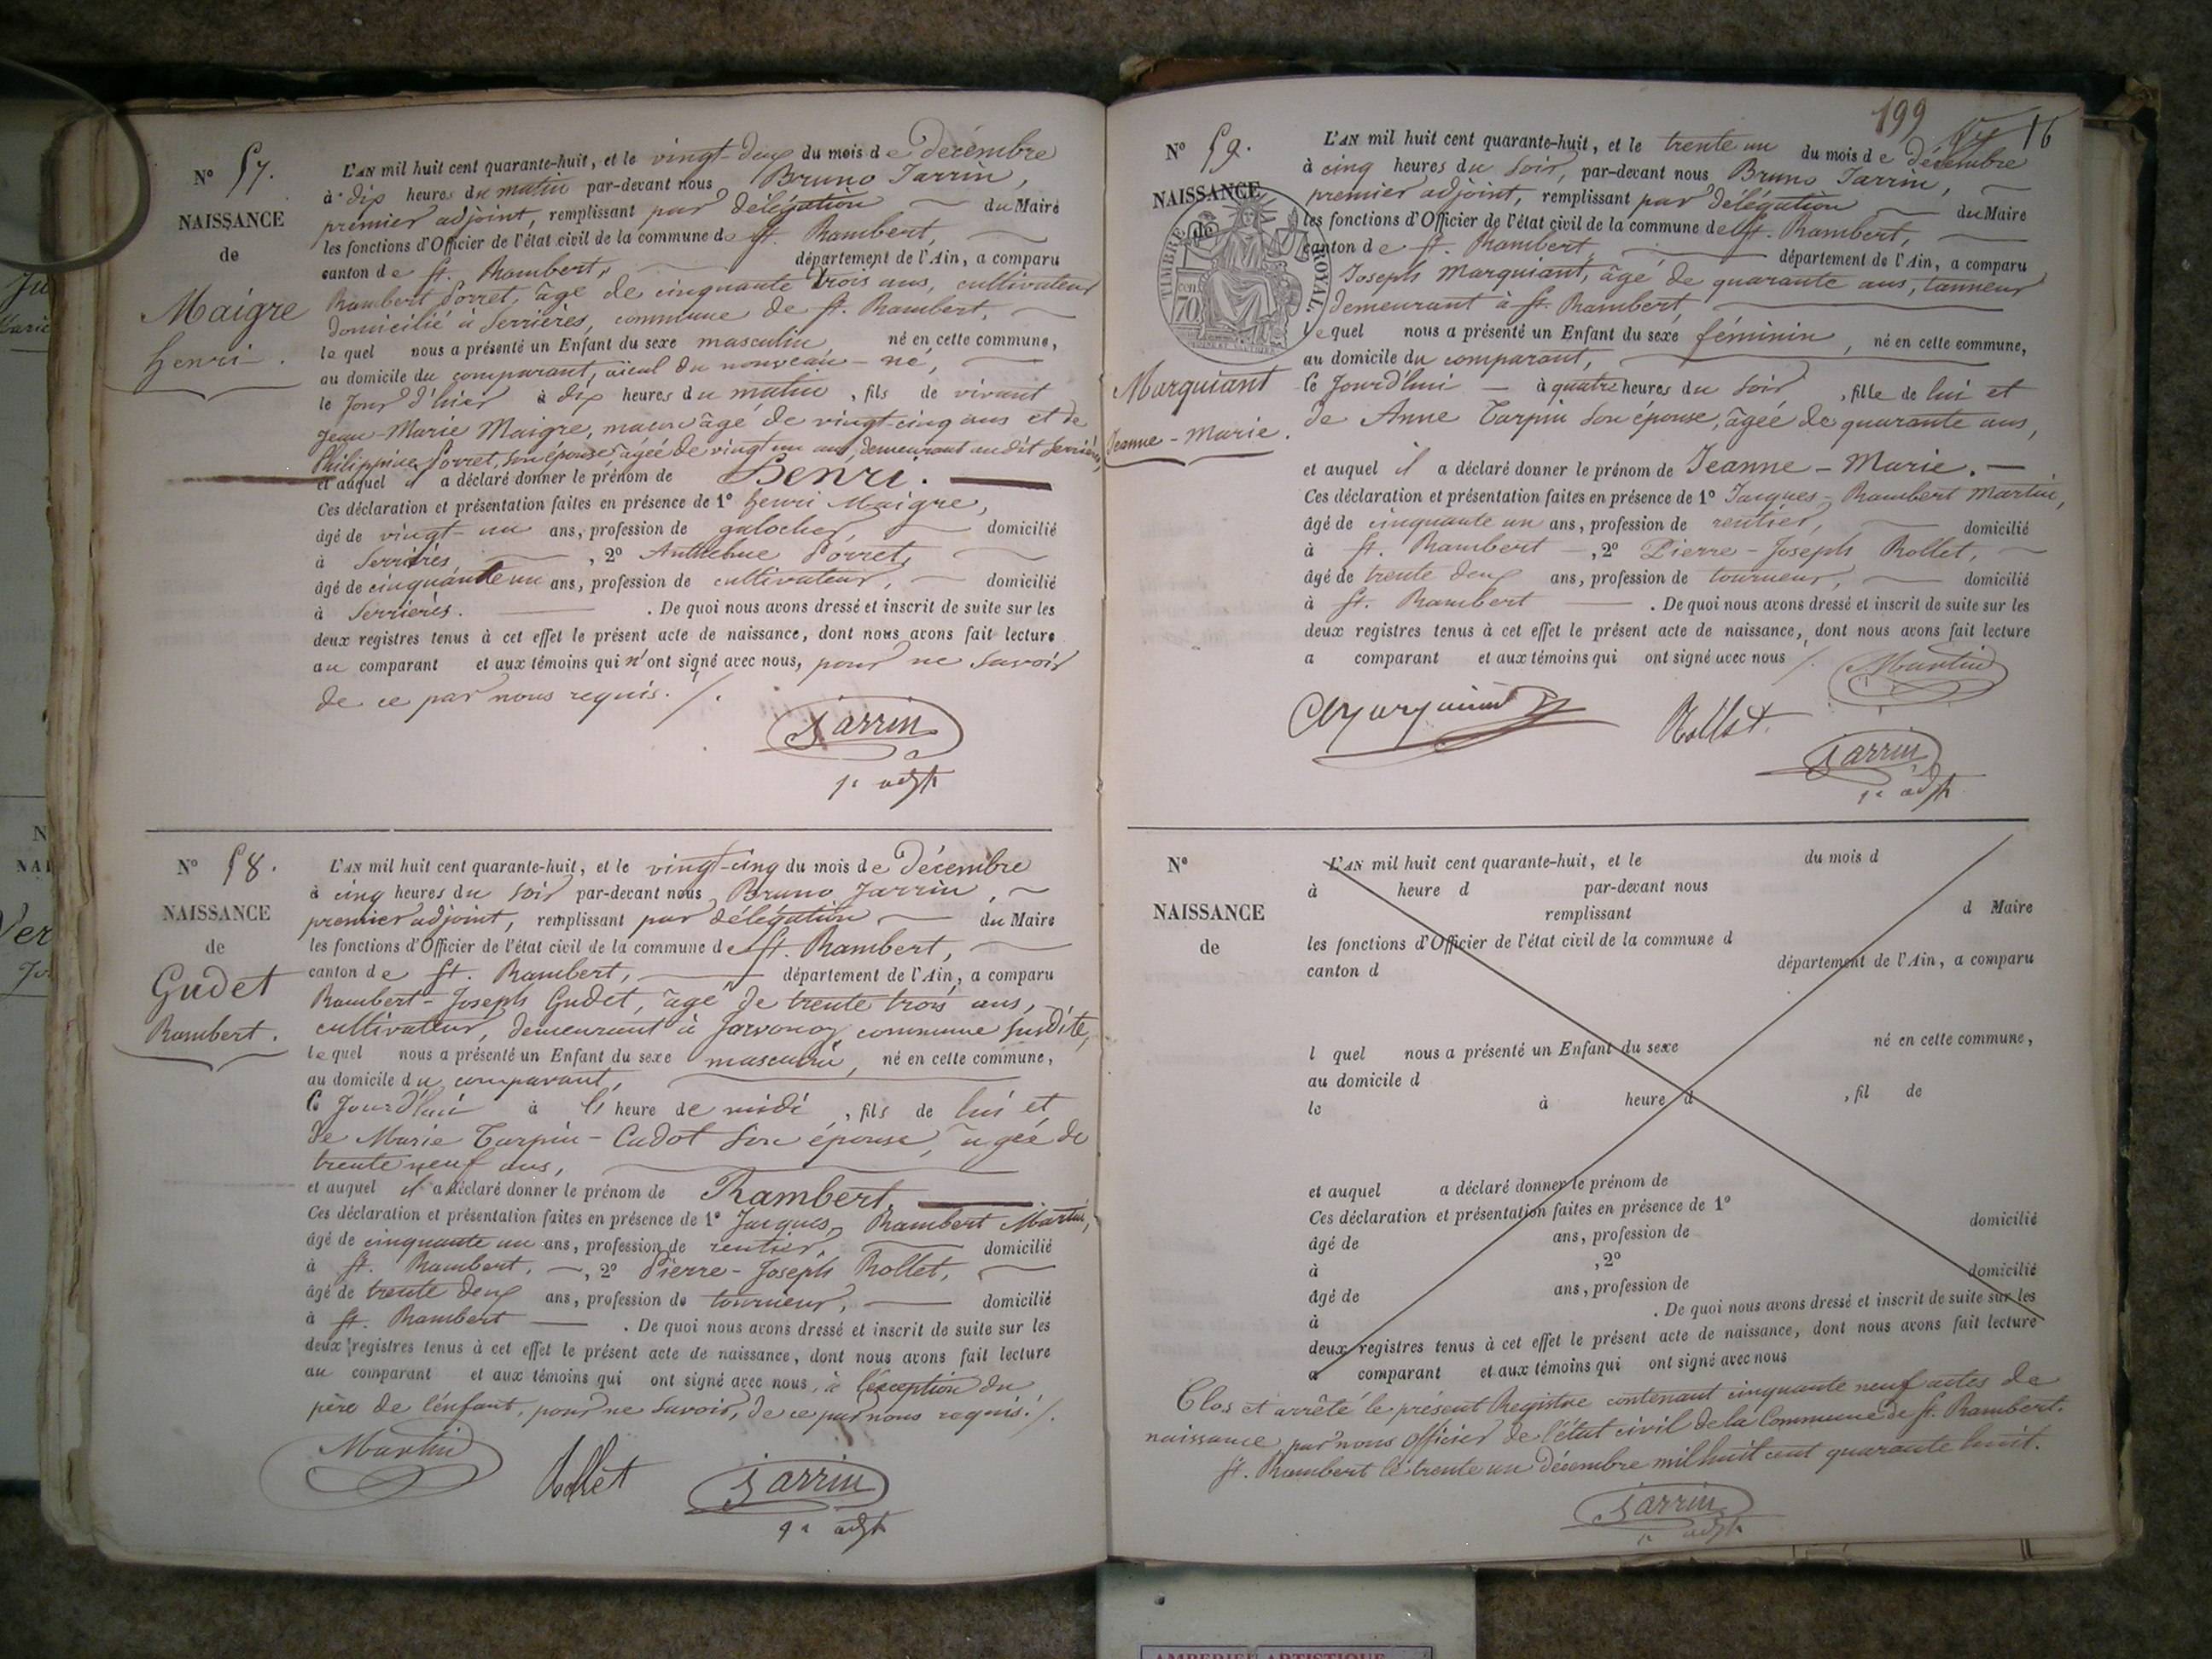 N° 57.
NAISSANCE
de
Maigre
henri.
L'AN mil huit cent quarante-huit, et le vingt-deux du mois de décembre
à dix heures du matin par-devant nous Bruno Jarrin,
premier adjoint, remplissant par délégation du Maire
les fonctions d'Officier de l'état civil de la commune de St. Rambert,
canton de St. Rambert, département de l'Ain, a comparu
Rambert Porret, âgé de cinquante trois ans, cultivateur
domicilié à Serrières, commune de St. Rambert,
lequel nous a présenté un Enfant du sexe masculin, né en cette commune,
au domicile du comparant, aïeul du nouveau-né,
le jour d'hier à dix heures du matin, fils de vivant
Jean-Marie Maigre, maçon âgé de vingt-cinq ans et de
Philippine Porret, son épouse âgée de vingt un ans, demeurant au dit Serrières,
et auquel il a déclaré donner le prénom de Henri.
Ces déclaration et présentation faites en présence de 1° henri Maigre,
âgé de vingt-un ans, profession de galocher, domicilié
à Serrières, 2° Anthelme Porret,
âgé de cinquante un ans, profession de cultivateur, domicilié
à Serrières. . De quoi nous avons dressé et inscrit de suite sur les
deux registres tenus à cet effet le présent acte de naissance, dont nous avons fait lecture
au comparant et aux témoins qui n'ont signé avec nous, pour ne savoir
de ce par nous requis. /.
Jarrin
1er adjt
N° 58.
NAISSANCE
de
Gudet
Rambert.
L'AN mil huit cent quarante-huit, et le vingt-cinq du mois de décembre
à cinq heures du soir par-devant nous Bruno Jarrin,
premier adjoint, remplissant par délégation du Maire
les fonctions d'Officier de l'état civil de la commune de St. Rambert,
canton de St. Rambert, département de l'Ain, a comparu
Rambert-Joseph Gudet, âgé de trente trois ans,
cultivateur, demeurant à commune susdite,
lequel nous a présenté un Enfant du sexe masculin, né en cette commune,
au domicile du comparant,
ce jourd'hui à l'heure de midi, fils de lui et
de Marie Tarpin-Cadot son épouse, âgée de
trente neuf ans,
et auquel il a déclaré donner le prénom de Rambert,
Ces déclaration et présentation faites en présence de 1° Jacques-Rambert Martin,
âgé de cinquante un ans, profession de rentier, domicilié
à St. Rambert, 2° Pierre-Joseph Rollet,
âgé de trente deux ans, profession de tourneur, domicilié
à St. Rambert . De quoi nous avons dressé et inscrit de suite sur les
deux registres tenus à cet effet le présent acte de naissance, dont nous avons fait lecture
au comparant et aux témoins qui ont signé avec nous, à l'exception du
père de l'enfant, pour ne savoir, de ce par nous requis. /.
Martin
Rollet
Jarrin
1er adjt
199
16
N° 59.
NAISSANCE
de
TIMBRE ROYAL
70 cen
Marquiant
Jeanne-Marie.
L'AN mil huit cent quarante-huit, et le trente un du mois de décembre
à cinq heures du soir, par-devant nous Bruno Jarrin,
premier adjoint, remplissant par délégation du Maire
les fonctions d'Officier de l'état civil de la commune de St. Rambert,
canton de St. Rambert, département de l'Ain, a comparu
Joseph Marquiant, âgé de quarante ans, tanneur
demeurant à St. Rambert,
lequel nous a présenté un Enfant du sexe féminin, né en cette commune,
au domicile du comparant,
ce jourd'hui à quatre heures du soir, fille de lui et
de Anne Tarpin son épouse, âgée de quarante ans,
et auquel il a déclaré donner le prénom de Jeanne-Marie.
Ces déclaration et présentation faites en présence de 1° Jacques-Rambert Martin,
âgé de cinquante un ans, profession de rentier, domicilié
à St. Rambert, 2° Pierre-Joseph Rollet,
âgé de trente deux ans, profession de tourneur, domicilié
à St. Rambert . De quoi nous avons dressé et inscrit de suite sur les
deux registres tenus à cet effet le présent acte de naissance, dont nous avons fait lecture
a comparant et aux témoins qui ont signé avec nous /.
Martin
Marquiant
Rollet
Jarrin
1er adjt
N°
NAISSANCE
de
L'AN mil huit cent quarante-huit, et le du mois d
à heure d par-devant nous
remplissant d Maire
les fonctions d'Officier de l'état civil de la commune d
canton d département de l'Ain, a comparu
l quel nous a présenté un Enfant du sexe né en cette commune,
au domicile d
le à heure d , fil de
et auquel a déclaré donner le prénom de
Ces déclaration et présentation faites en présence de 1°
âgé de ans, profession de domicilié
à , 2°
âgé de ans, profession de domicilié
à . De quoi nous avons dressé et inscrit de suite sur les
deux registres tenus à cet effet le présent acte de naissance, dont nous avons fait lecture
a comparant et aux témoins qui ont signé avec nous
Clos et arrêté le présent Registre contenant cinquante neuf actes de
naissance par nous Officier de l'état civil de la Commune de St. Rambert.
St. Rambert le trente un Décembre mil huit cent quarante huit.
Jarrin
1er adjt
AMBERIEU ARTISTIQUE